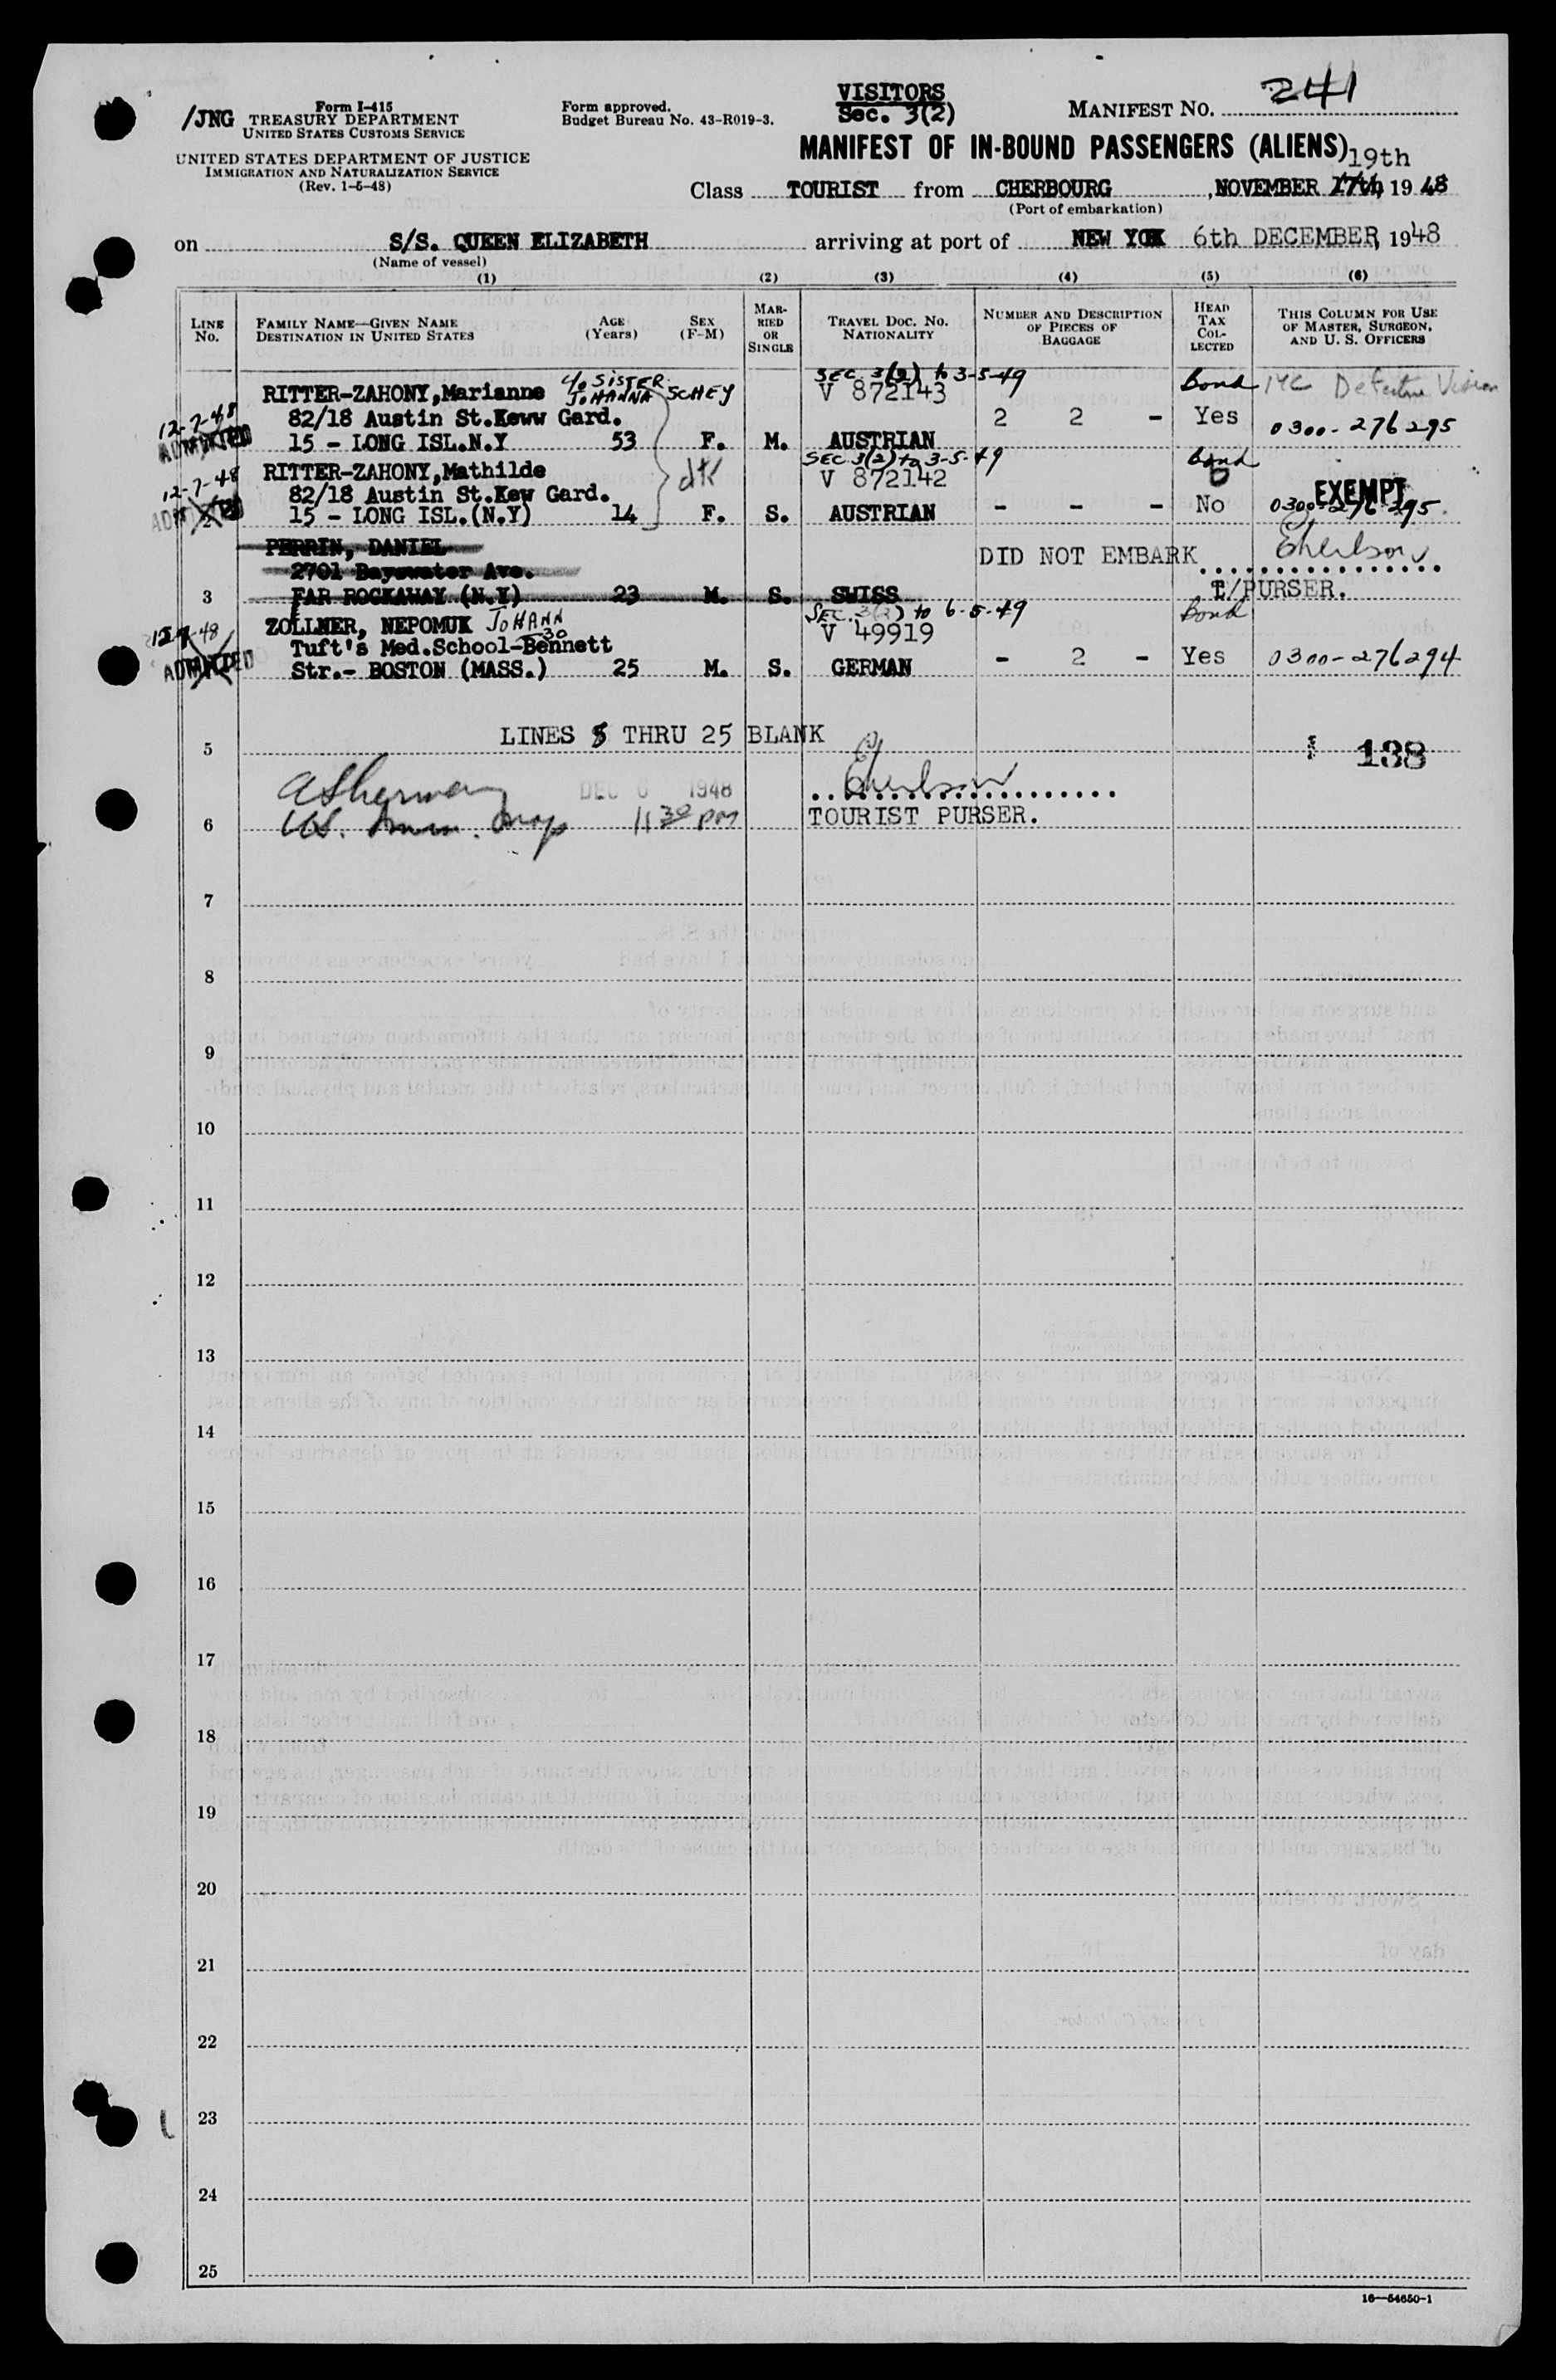 VISITORS
Sec. 3(2)
/JNG
Form I-415
TREASURY DEPARTMENT
UNITED STATES CUSTOMS SERVICE
UNITED STATES DEPARTMENT OF JUSTICE
IMMIGRATION AND NATURALIZATION SERVICE
(Rev. 1-5-48)
Form approved.
Budget Bureau No. 43-R019-3.
MANIFEST NO. 241
MANIFEST OF IN-BOUND PASSENGERS (ALIENS)
19th
Class TOURIST from CHERBOURG, NOVEMBER 17th, 19 48
(Port of embarkation)
on S/S. QUEEN ELIZABETH arriving at port of NEW YOK 6th DECEMBER, 1948
(Name of vessel)
(1) (2) (3) (4) (5) (6)
LINE No.
FAMILY NAME—GIVEN NAME
DESTINATION IN UNITED STATES
AGE (Years)
SEX (F-M)
MARRIED OR SINGLE
TRAVEL DOC. NO.
NATIONALITY
NUMBER AND DESCRIPTION OF PIECES OF BAGGAGE
HEAD TAX COLLECTED
THIS COLUMN FOR USE OF MASTER, SURGEON, AND U. S. OFFICERS
SEC. 3(2) to 3-5-49
RITTER-ZAHONY,Marianne c/o SISTER JOHANNA SCHEY V 872143 Bond Defective Vision
12-7-48 82/18 Austin St.Keww Gard. 2 2 - Yes
ADMITTED 15 - LONG ISL.N.Y 53 F. M. AUSTRIAN 0300-276295
SEC 3(2) to 3-5-49
RITTER-ZAHONY,Mathilde V 872142 Bond
12-7-48 82/18 Austin St.Kew Gard. EXEMPT
ADMITTED 2 15 - LONG ISL.(N.Y) 14 F. S. AUSTRIAN - - - No 0300-276295
PERRIN, DANIEL DID NOT EMBARK
2701 Bayswater Ave.
3 FAR ROCKAWAY (N.Y) 23 M. S. SWISS T/PURSER.
SEC. 3(2) to 6-5-49
12-7-48 ZOLLNER, NEPOMUK JOHANN V 49919 Bond
Tuft's Med.School-Bennett 30
ADMITTED Str.- BOSTON (MASS.) 25 M. S. GERMAN - 2 - Yes 0300-276294
LINES 5 THRU 25 BLANK
5 138
DEC 6 1948
6 11 30 PM TOURIST PURSER.
7
8
9
10
11
12
13
14
15
16
17
18
19
20
21
22
23
24
25
16—54650-1